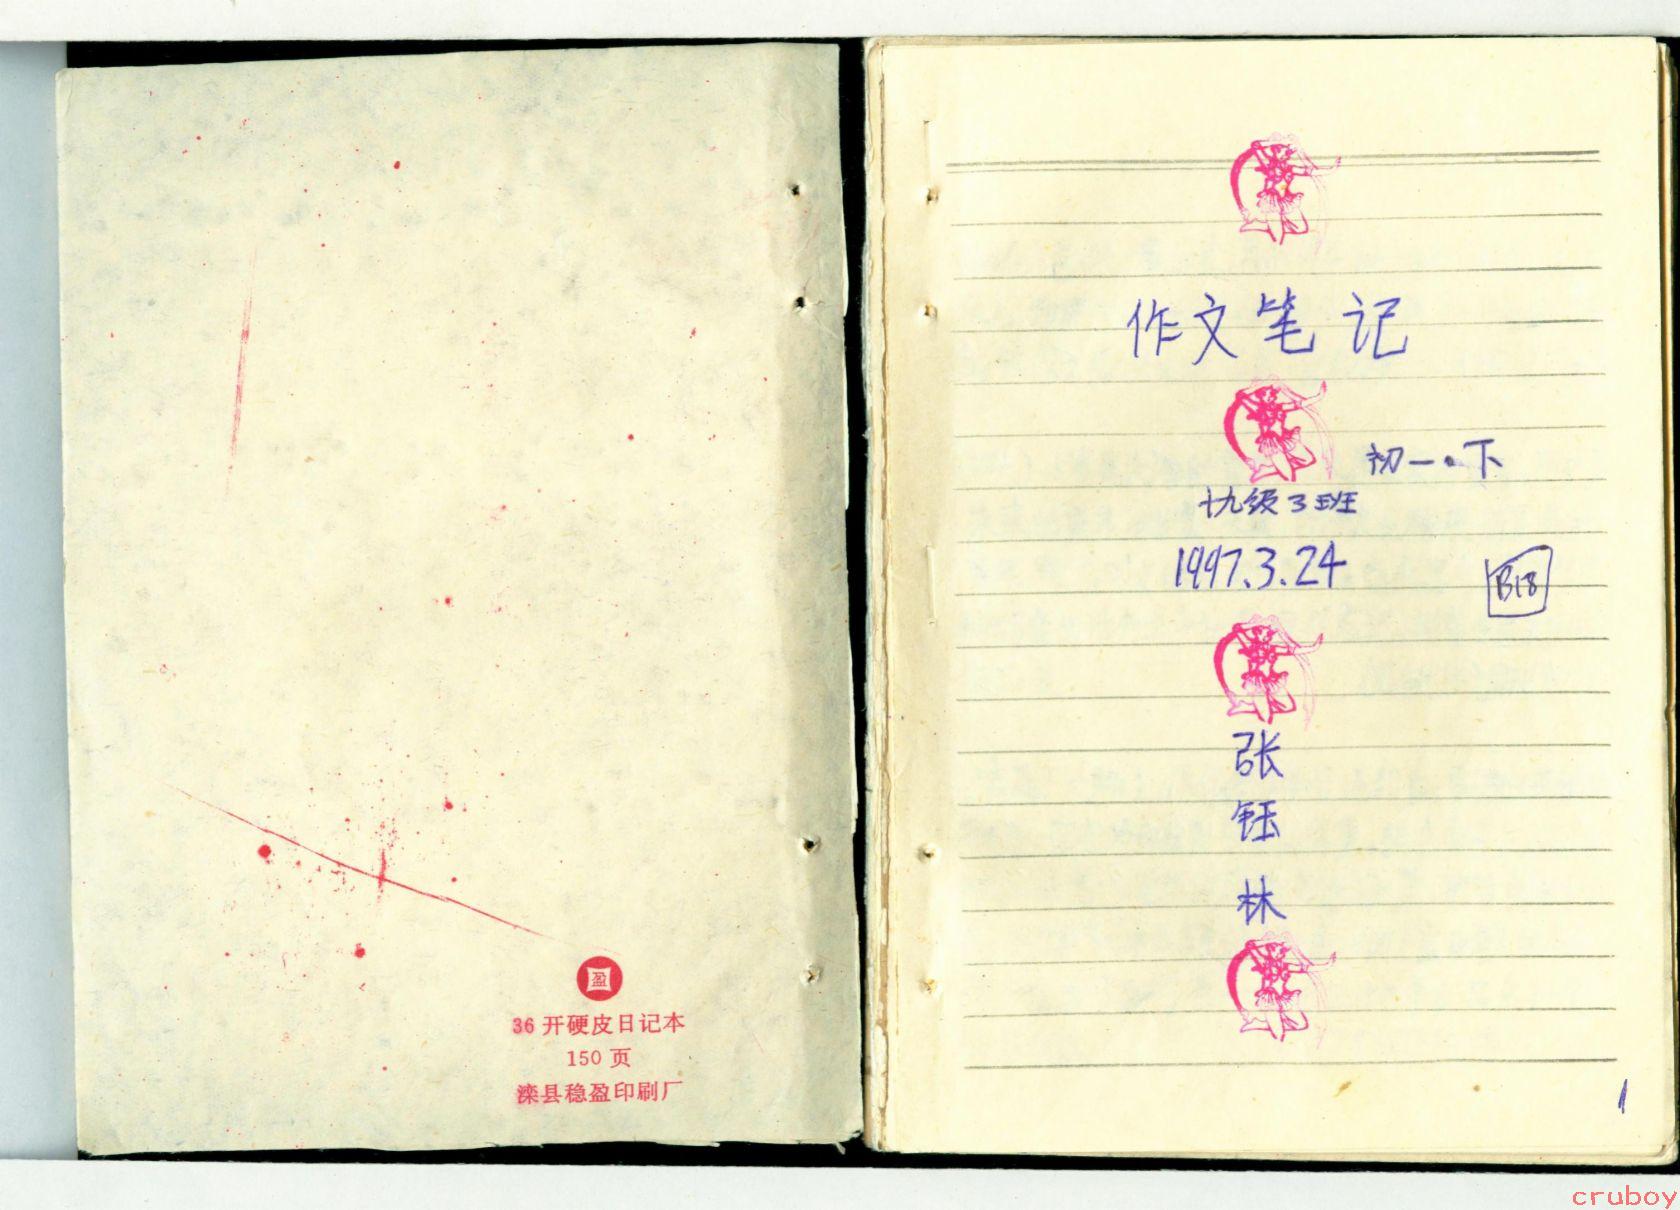 盈
36开硬皮日记本
150页
滦县稳盈印刷厂
作文笔记
初一·下
十九级3班
1997.3.24
B18
张
钰
林
1
cruboy